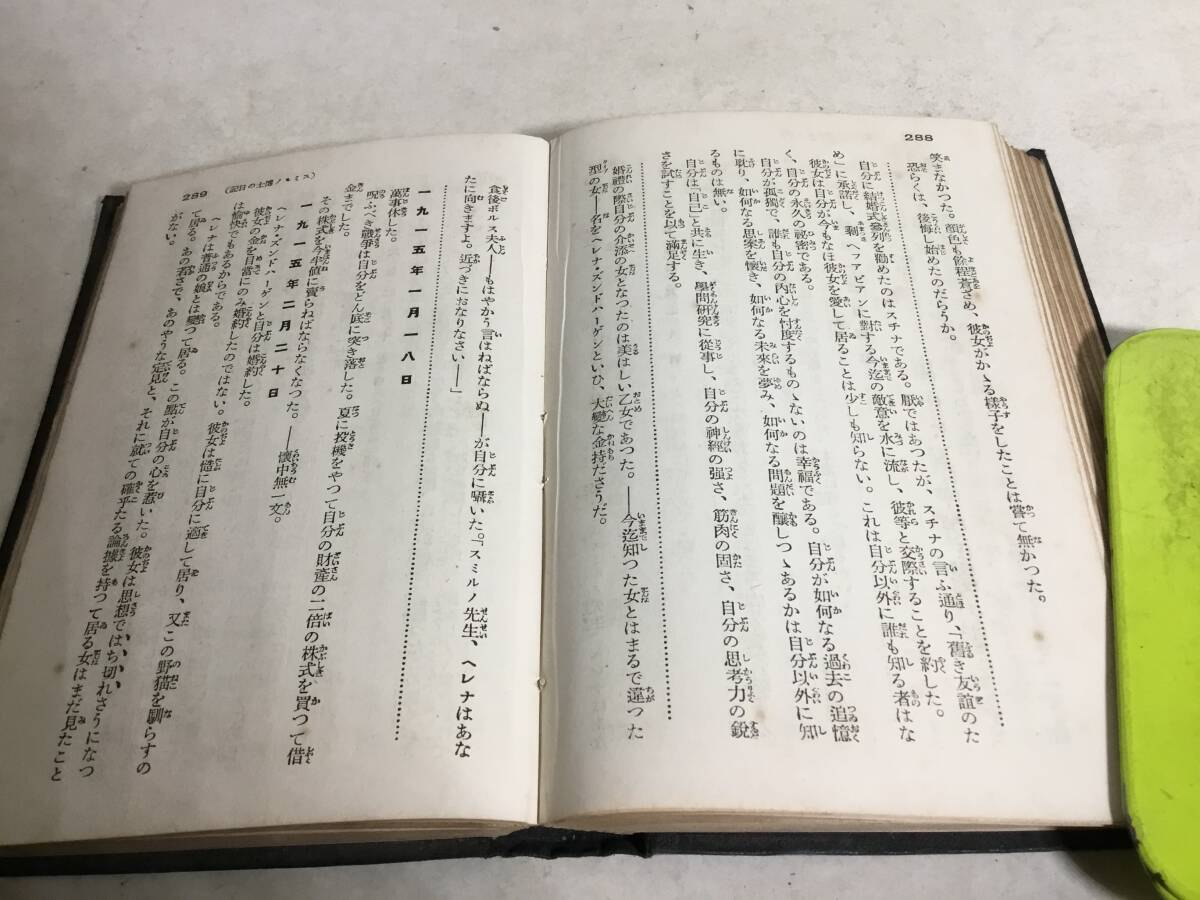 288
笑まなかつた。顏色も餘程蒼ざめ、彼女がかゝる樣子をしたことは嘗て無かつた。
恐らくは、後悔し始めたのだらうか。
自分に結婚式參列を勸めたのはスチナである。厭ではあつたが、スチナの言ふ通り、「舊き友誼のた
め」に承諾し、剩へフアビアンに對する今迄の敵意を水に流し、彼等と交際することを約した。
彼女は自分が今もなほ彼女を愛して居ることは少しも知らない。これは自分以外に誰も知る者はな
く、自分の永久の祕密である。
自分が孤獨で、誰も自分の内心を忖度するものゝないのは幸福である。自分が如何なる過去の追憶
に耽り、如何なる思案を懷き、如何なる未來を夢み、如何なる問題を釀しつゝあるかは自分以外に知
るものは無い。
自分は「自己」と共に生き、學問研究に從事し、自分の神經の强さ、筋肉の固さ、自分の思考力の銳
さを試すことを以て滿足する。
婚禮の際自分の介添の女となつたのは美はしい乙女であつた。——今迄知つた女とはまるで違つた
型の女——名をヘレナ・ズンドハーゲンといひ、大變な金持ださうだ。
289
(スミルノ博士の日記)
食後ボルス夫人——もはやかう言はねばならぬ——が自分に囁いた。「スミルノ先生、ヘレナはあな
たに向きますよ。近づきにおなりなさい——」
一九一五年一月一八日
萬事休した。
呪ふべき戰爭は自分をどん底に突き落した。夏に投機をやつて自分の財產の二倍の株式を買つて借
金までした。
その株式を今半値に賣らねばならなくなつた。——懷中無一文。
一九一五年二月二十日
ヘレナ・ズンドハーゲンと自分は婚約した。
彼女の金を目當にのみ婚約したのではない。彼女は僕に自分に適して居り、又この野猫を馴らすの
は愉快でもあるからである。
ヘレナは普通の娘とは變つて居る。この點が自分の心を惹いた。彼女は思想ではち切れさうになつ
て居る。あの若さで、あのやうな定見と、それに就ての確乎たる論據を持つて居る女はまだ見たこと
がない。